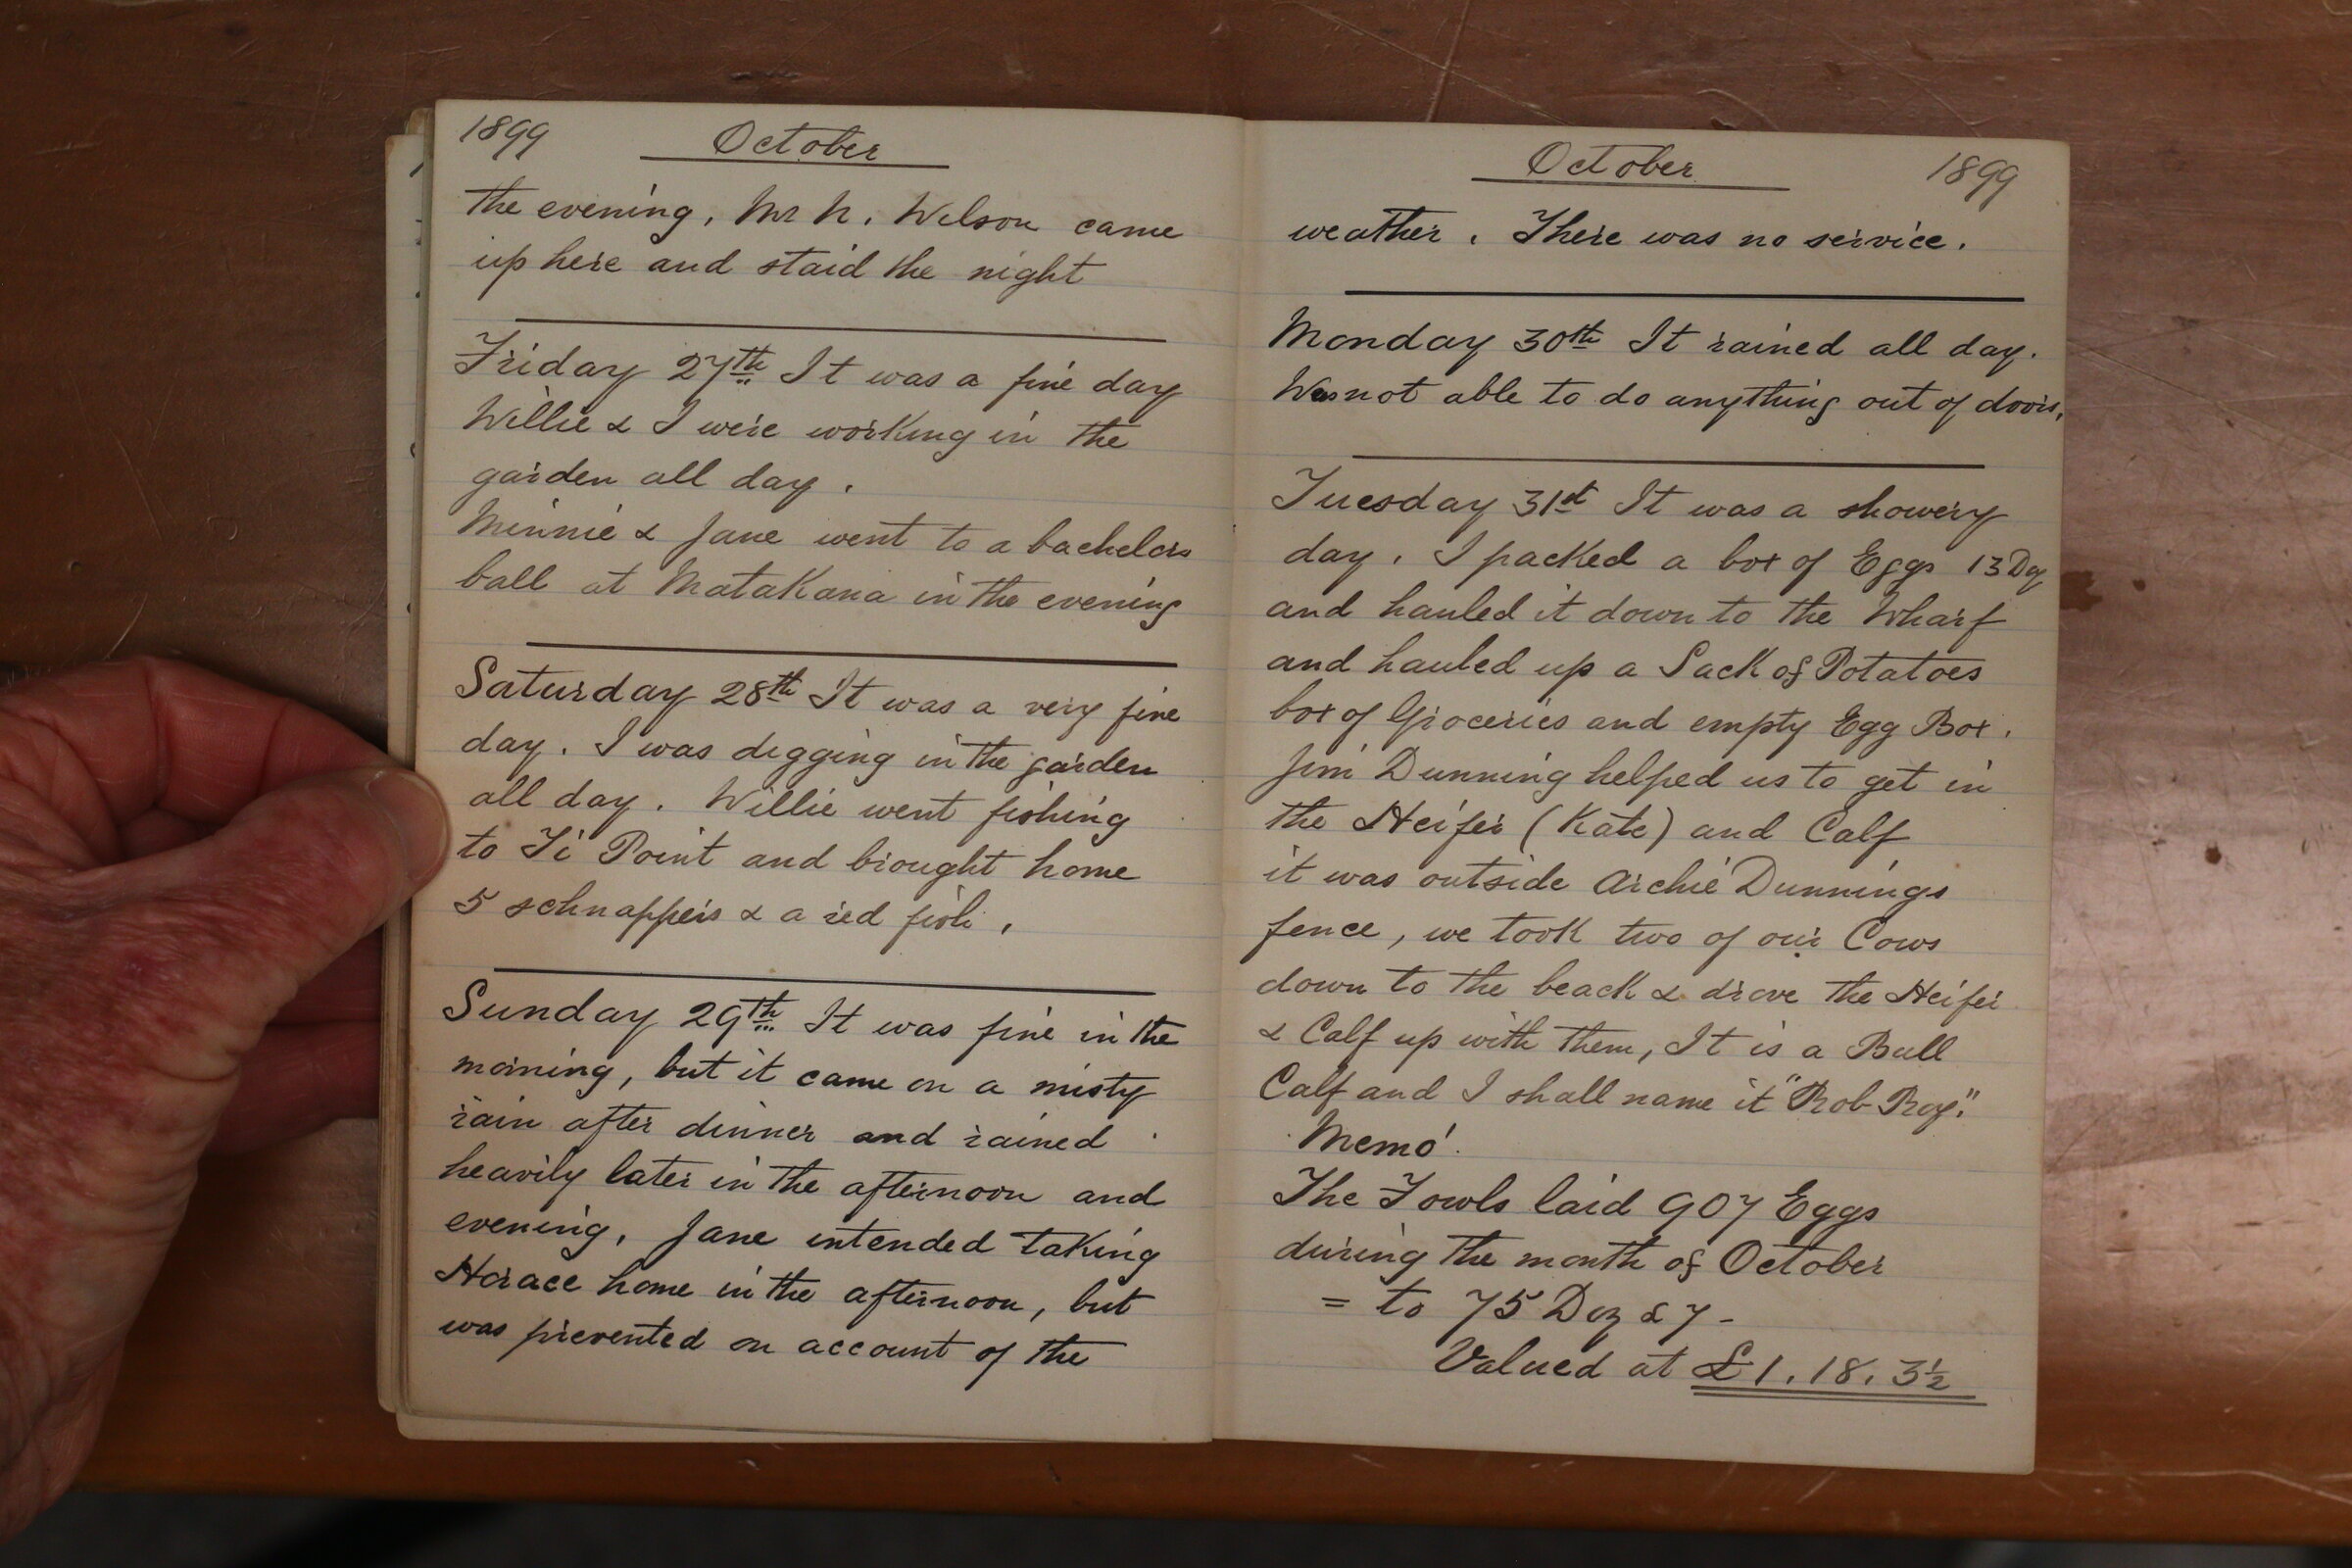 1899 October
the evening, Mr N. Wilson came
up here and staid the night
Friday 27th It was a fine day
Willie & I were working in the
garden all day.
Minnie & Jane went to a bachelors
ball at Matakana in the evening
Saturday 28th It was a very fine
day. I was digging in the garden
all day. Willie went fishing
to Ti Point and brought home
5 schnappers & a red fish,
Sunday 29th It was fine in the
morning, but it came on a misty
rain after dinner and rained
heavily later in the afternoon and
evening, Jane intended taking
Horace home in the afternoon, but
was prevented on account of the
October 1899
weather. There was no service.
Monday 30th It rained all day.
Was not able to do anything out of doors,
Tuesday 31st It was a showery
day. I packed a box of Eggs 13 Dz
and hauled it down to the Wharf
and hauled up a Sack of Potatoes
box of Groceries and empty Egg Box.
Jim Dunning helped us to get in
the Heifer (Kate) and Calf
it was outside Archie Dunnings
fence, we took two of our Cows
down to the beach & drove the Heifer
& Calf up with them, It is a Bull
Calf and I shall name it "Rob Roy."
Memo.
The Fowls laid 907 Eggs
during the month of October
= to 75 Doz & 7 -
Valued at £1. 18. 3½